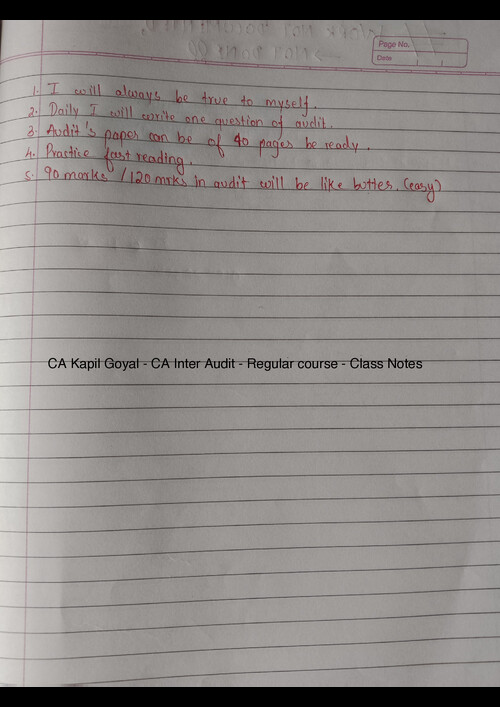 Page No.
Date
1. I will always be true to myself.
2. Daily I will write one question of audit.
3. Audit's paper can be of 40 pages be ready.
4. Practice fast reading.
5. 90 marks / 120 mrks in audit will be like butter. (easy)
CA Kapil Goyal - CA Inter Audit - Regular course - Class Notes